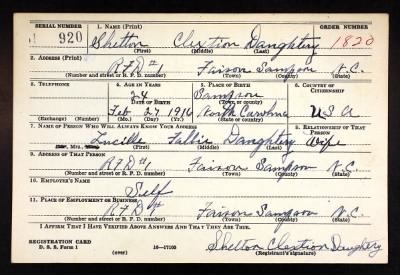 SERIAL NUMBER 1. NAME (Print)
920 Shelton Clextion Daughtery 1820
(First) (Middle) (Last)
2. ADDRESS (Print)
R.F.D #1 Faison Sampson N.C.
(Number and street or R. F. D. number) (Town) (County) (State)
3. TELEPHONE 4. AGE IN YEARS 5. PLACE OF BIRTH 6. COUNTRY OF CITIZENSHIP
24 Sampson
DATE OF BIRTH (Town or county)
Feb 27 1916 North Carolina U.S.A
(Exchange) (Number) (Mo.) (Day) (Yr.) (State or country)
7. NAME OF PERSON WHO WILL ALWAYS KNOW YOUR ADDRESS 8. RELATIONSHIP OF THAT PERSON
Lucille Daughtery Wife
Mrs. (First) (Middle) (Last)
9. ADDRESS OF THAT PERSON
R.F.D #1 Faison Sampson N.C.
(Number and street or R. F. D. number) (Town) (County) (State)
10. EMPLOYER'S NAME
Self
11. PLACE OF EMPLOYMENT OR BUSINESS
R.F.D #1 Faison Sampson N.C.
(Number and street or R. F. D. number) (Town) (County) (State)
I AFFIRM THAT I HAVE VERIFIED ABOVE ANSWERS AND THAT THEY ARE TRUE.
REGISTRATION CARD
D. S. S. Form 1 16—17105 Shelton Clextion Daughtery
(over) (Registrant's signature)